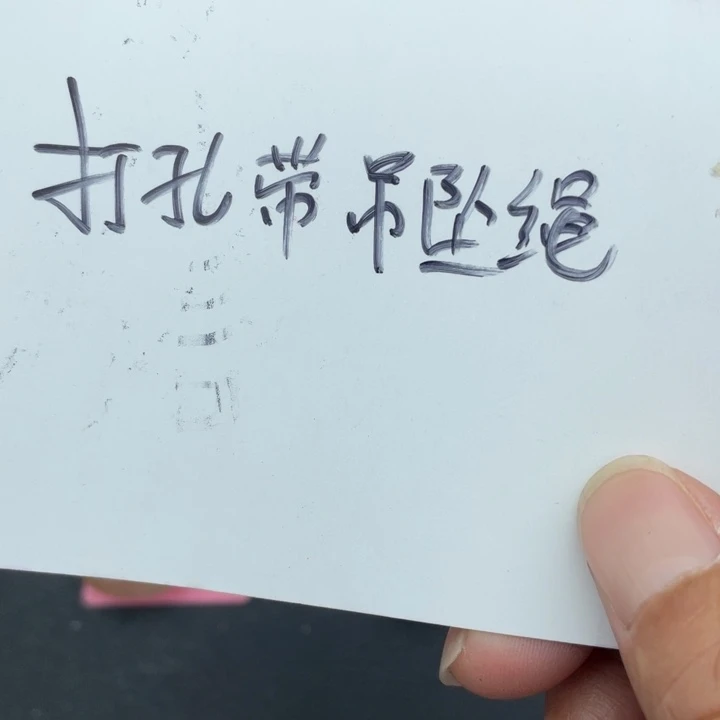 打孔带吊坠绳